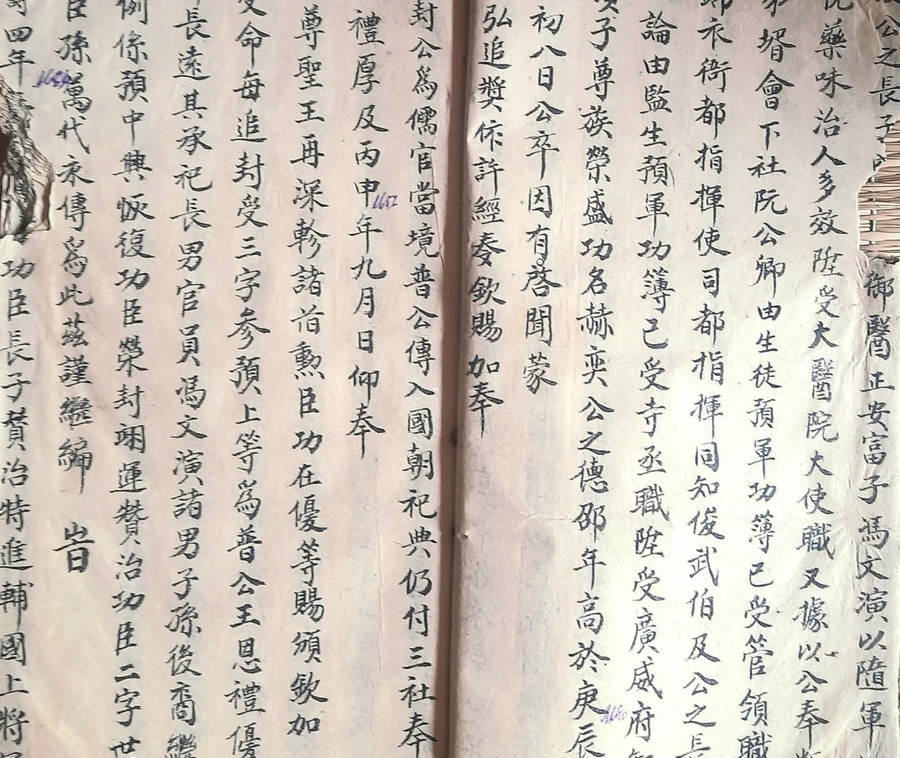 公之長子
御醫正安富子馮文演以隨軍
藥味治人多效陞受大醫院大使職又據以公奉
壻會下社阮公卿由生徒預軍功簿已受管領職
衣衛都指揮使司都指揮同知俊武伯及公之長
論由監生預軍功簿已受寺丞職陞受廣威府
子尊族榮盛功名赫奕公之德邵年高於庚辰
1640
初八日公卒因有啓聞蒙
弘追奬係許經奏欽賜加奉
封公爲儒官當境普公傳入國朝祀典仍付三社奉
禮厚及丙申年九月日仰奉
1652
尊聖王再深軫諸首勲臣功在優等賜頒欽加
受命每追封受三字參預上等爲普公王恩禮優
長遠其承祀長男官員馮文演諸男子孫後裔繼
例係預中興恢復功臣榮封翊運贊治功臣二字世
臣孫萬代永傳爲此茲謹繼編 旹
四年
功臣長子贊治特進輔國上將